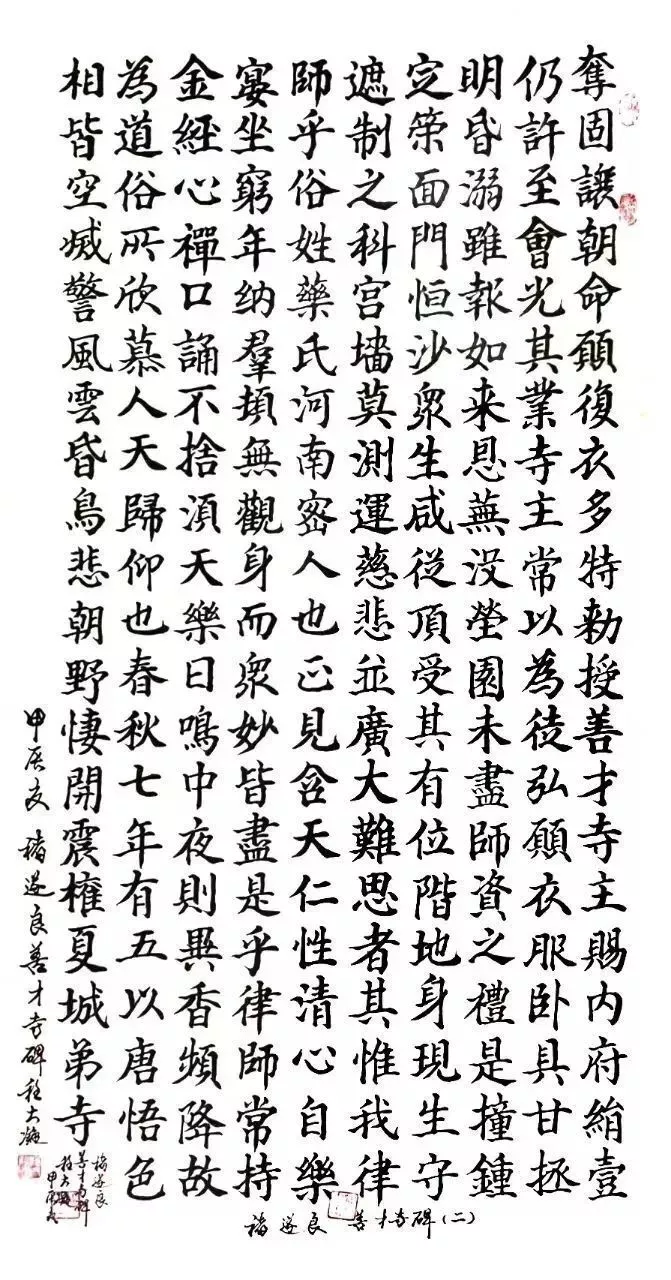 奪固讓朝命願復衣多特勑授善才寺主賜内府絹壹
仍許至會光其業寺主常以為徒弘願衣服卧具甘拯
明昏溺雖報如来恩蕪没塋園未盡師資之禮是撞鍾
定榮面門恒沙眾生咸從頂受其有位階地身現生守
遮制之科宮墻莫測運慈悲並廣大難思者其惟我律
師乎俗姓藥氏河南密人也正見含天仁性清心自樂
宴坐窮年纳羣頄無觀身而眾妙皆盡是乎律師常持
金經心禪口誦不捨湏天樂日鳴中夜則異香頻降故
為道俗所欣慕人天歸仰也春秋七年有五以唐悟色
相皆空臧警風雲昏鳥悲朝野悽開震權夏城弟寺
甲辰 褚遂良善才寺碑
褚遂良
善才寺碑
褚遂良 善才寺碑(二)